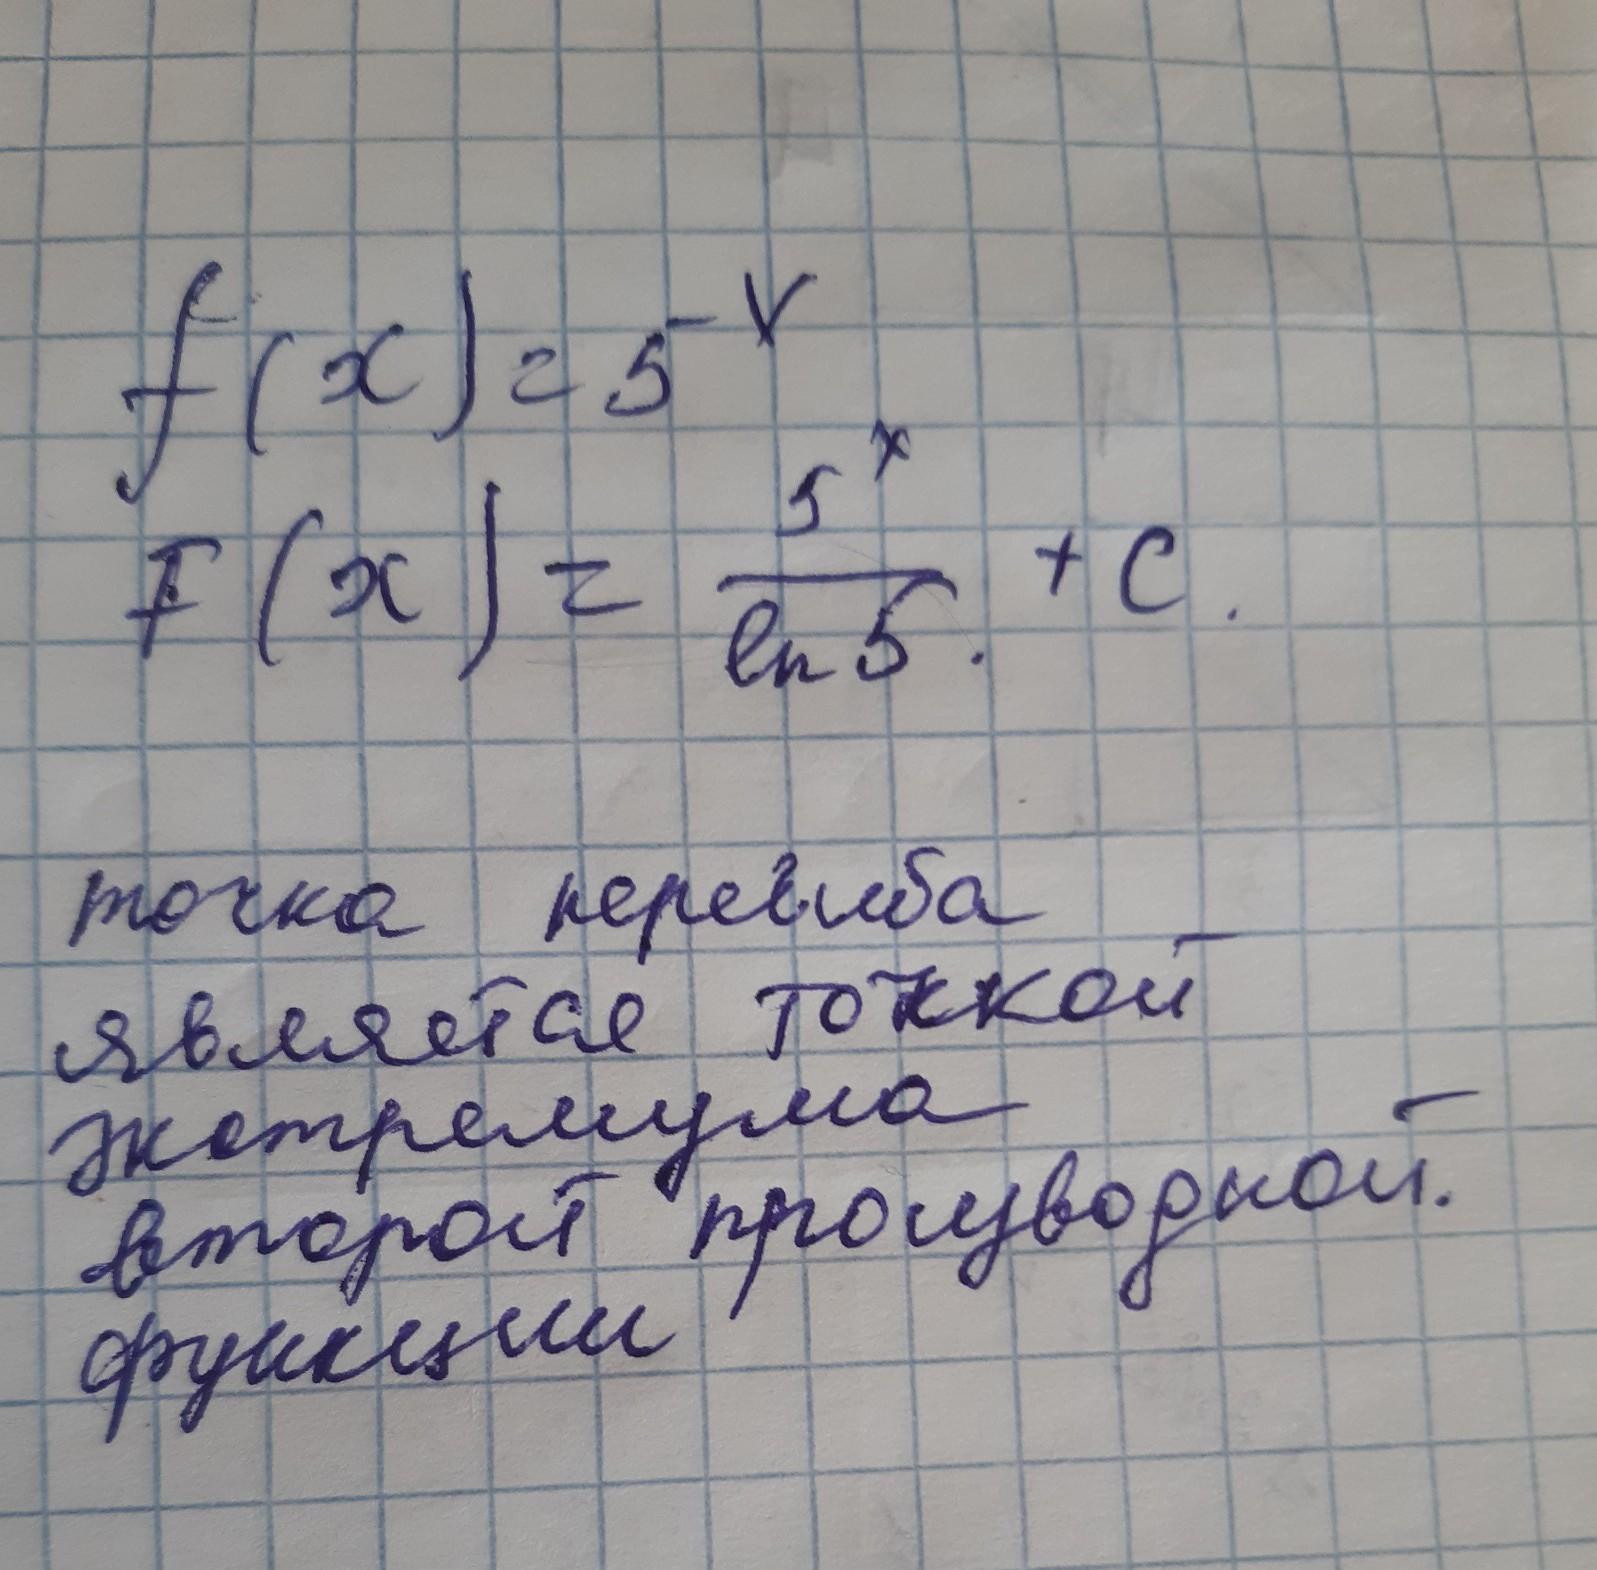 f(x)=5^x
F(x)= 5^x/ln5. + C.
точка перегиба
является точкой
экстремума
второй производной.
функции